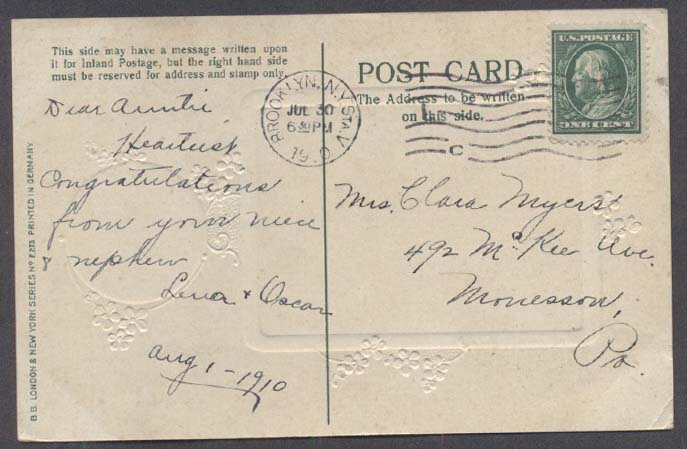 This side may have a message written upon
it for Inland Postage, but the right hand side
must be reserved for address and stamp only.
Dear Auntie,
Heartiest
Congratulations
from your niece
& nephew
Lena & Oscar
Aug 1-1910
B.B. LONDON & NEW YORK SERIES No E273 PRINTED IN GERMANY
BROOKLYN, N.Y. STA. V.
JUL 30
6 30 PM
1910
C
POST CARD
The Address to be written
on this side.
U.S. POSTAGE
ONE CENT
Mrs. Clara Myers
492 McKee Ave.
Monesson,
Pa.